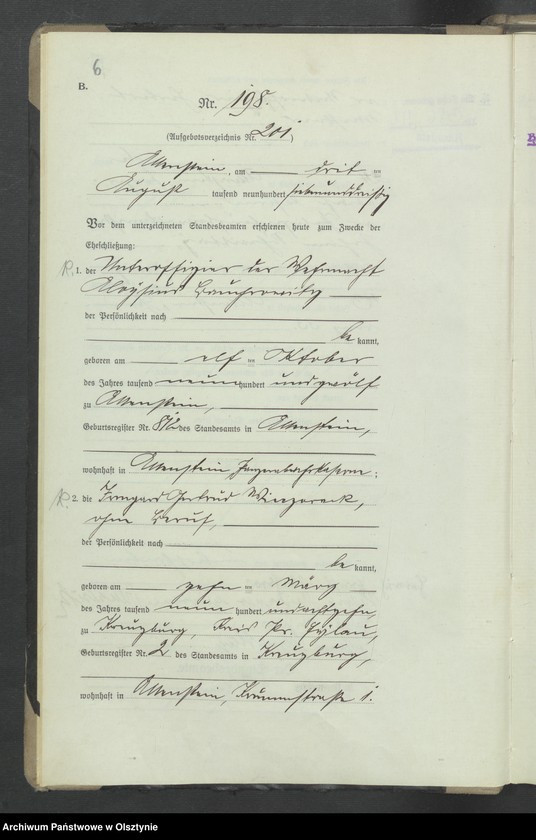 6
B.
Nr. 198.
(Aufgebotsverzeichnis Nr. 201)
Allenstein, am drit ten
August tausend neunhundert siebenunddreißig
Vor dem unterzeichneten Standesbeamten erschienen heute zum Zwecke der
Eheschließung:
R. 1. der Unteroffizier der Wehrmacht
Aloysius
der Persönlichkeit nach
be kannt,
geboren am elf ten Oktober
des Jahres tausend neun hundert undzwölf
zu Allenstein,
Geburtsregister Nr. 816 des Standesamts in Allenstein,
wohnhaft in Allenstein ;
R. 2. die Irmgard Gertrud Wieczoreck,
ohne Beruf,
der Persönlichkeit nach
be kannt,
geboren am zehn ten März
des Jahres tausend neun hundert undachtzehn
zu Kreuzburg, Kreis Pr. Eylau,
Geburtsregister Nr. 2 des Standesamts in Kreuzburg,
wohnhaft in Allenstein, Krummstraße 1.
Archiwum Państwowe w Olsztynie